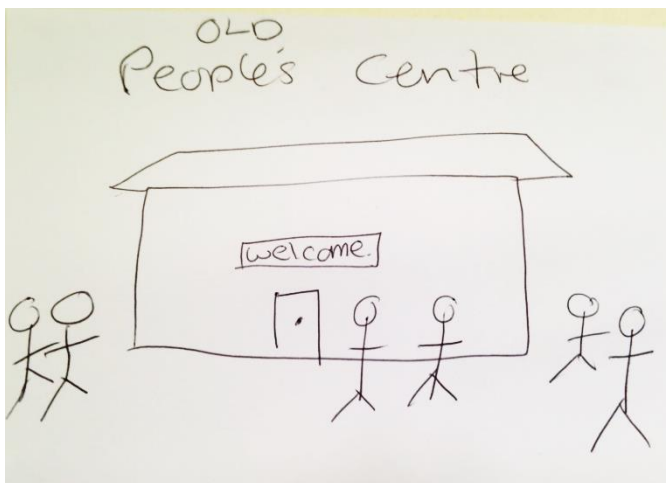 OLD
People's Centre
welcome.